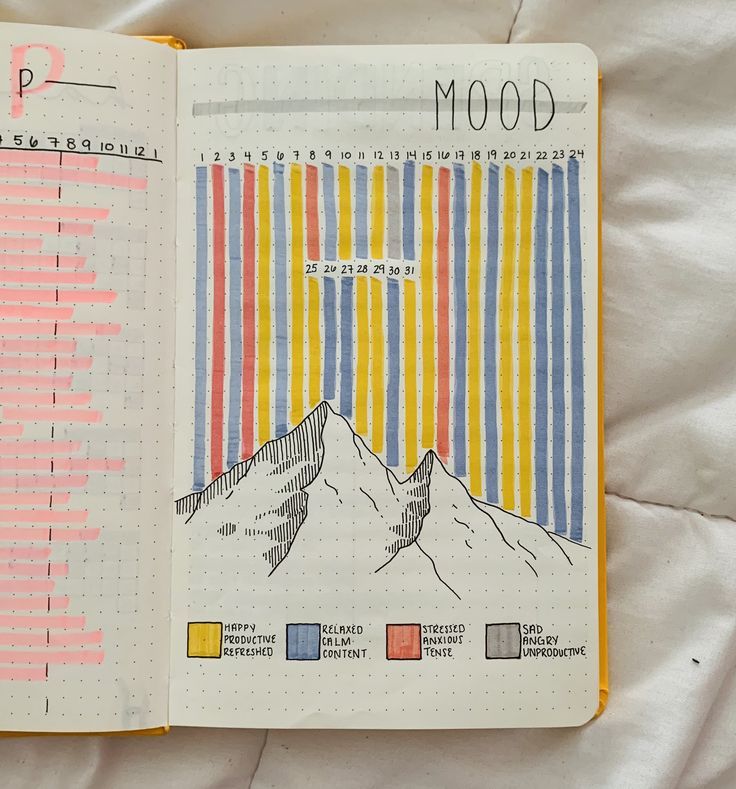 P
5 6 7 8 9 10 11 12 1
MOOD
1 2 3 4 5 6 7 8 9 10 11 12 13 14 15 16 17 18 19 20 21 22 23 24
25 26 27 28 29 30 31
HAPPY
PRODUCTIVE
REFRESHED
RELAXED
CALM.
CONTENT.
STRESSED
ANXIOUS
TENSE
SAD
ANGRY
UNPRODUCTIVE